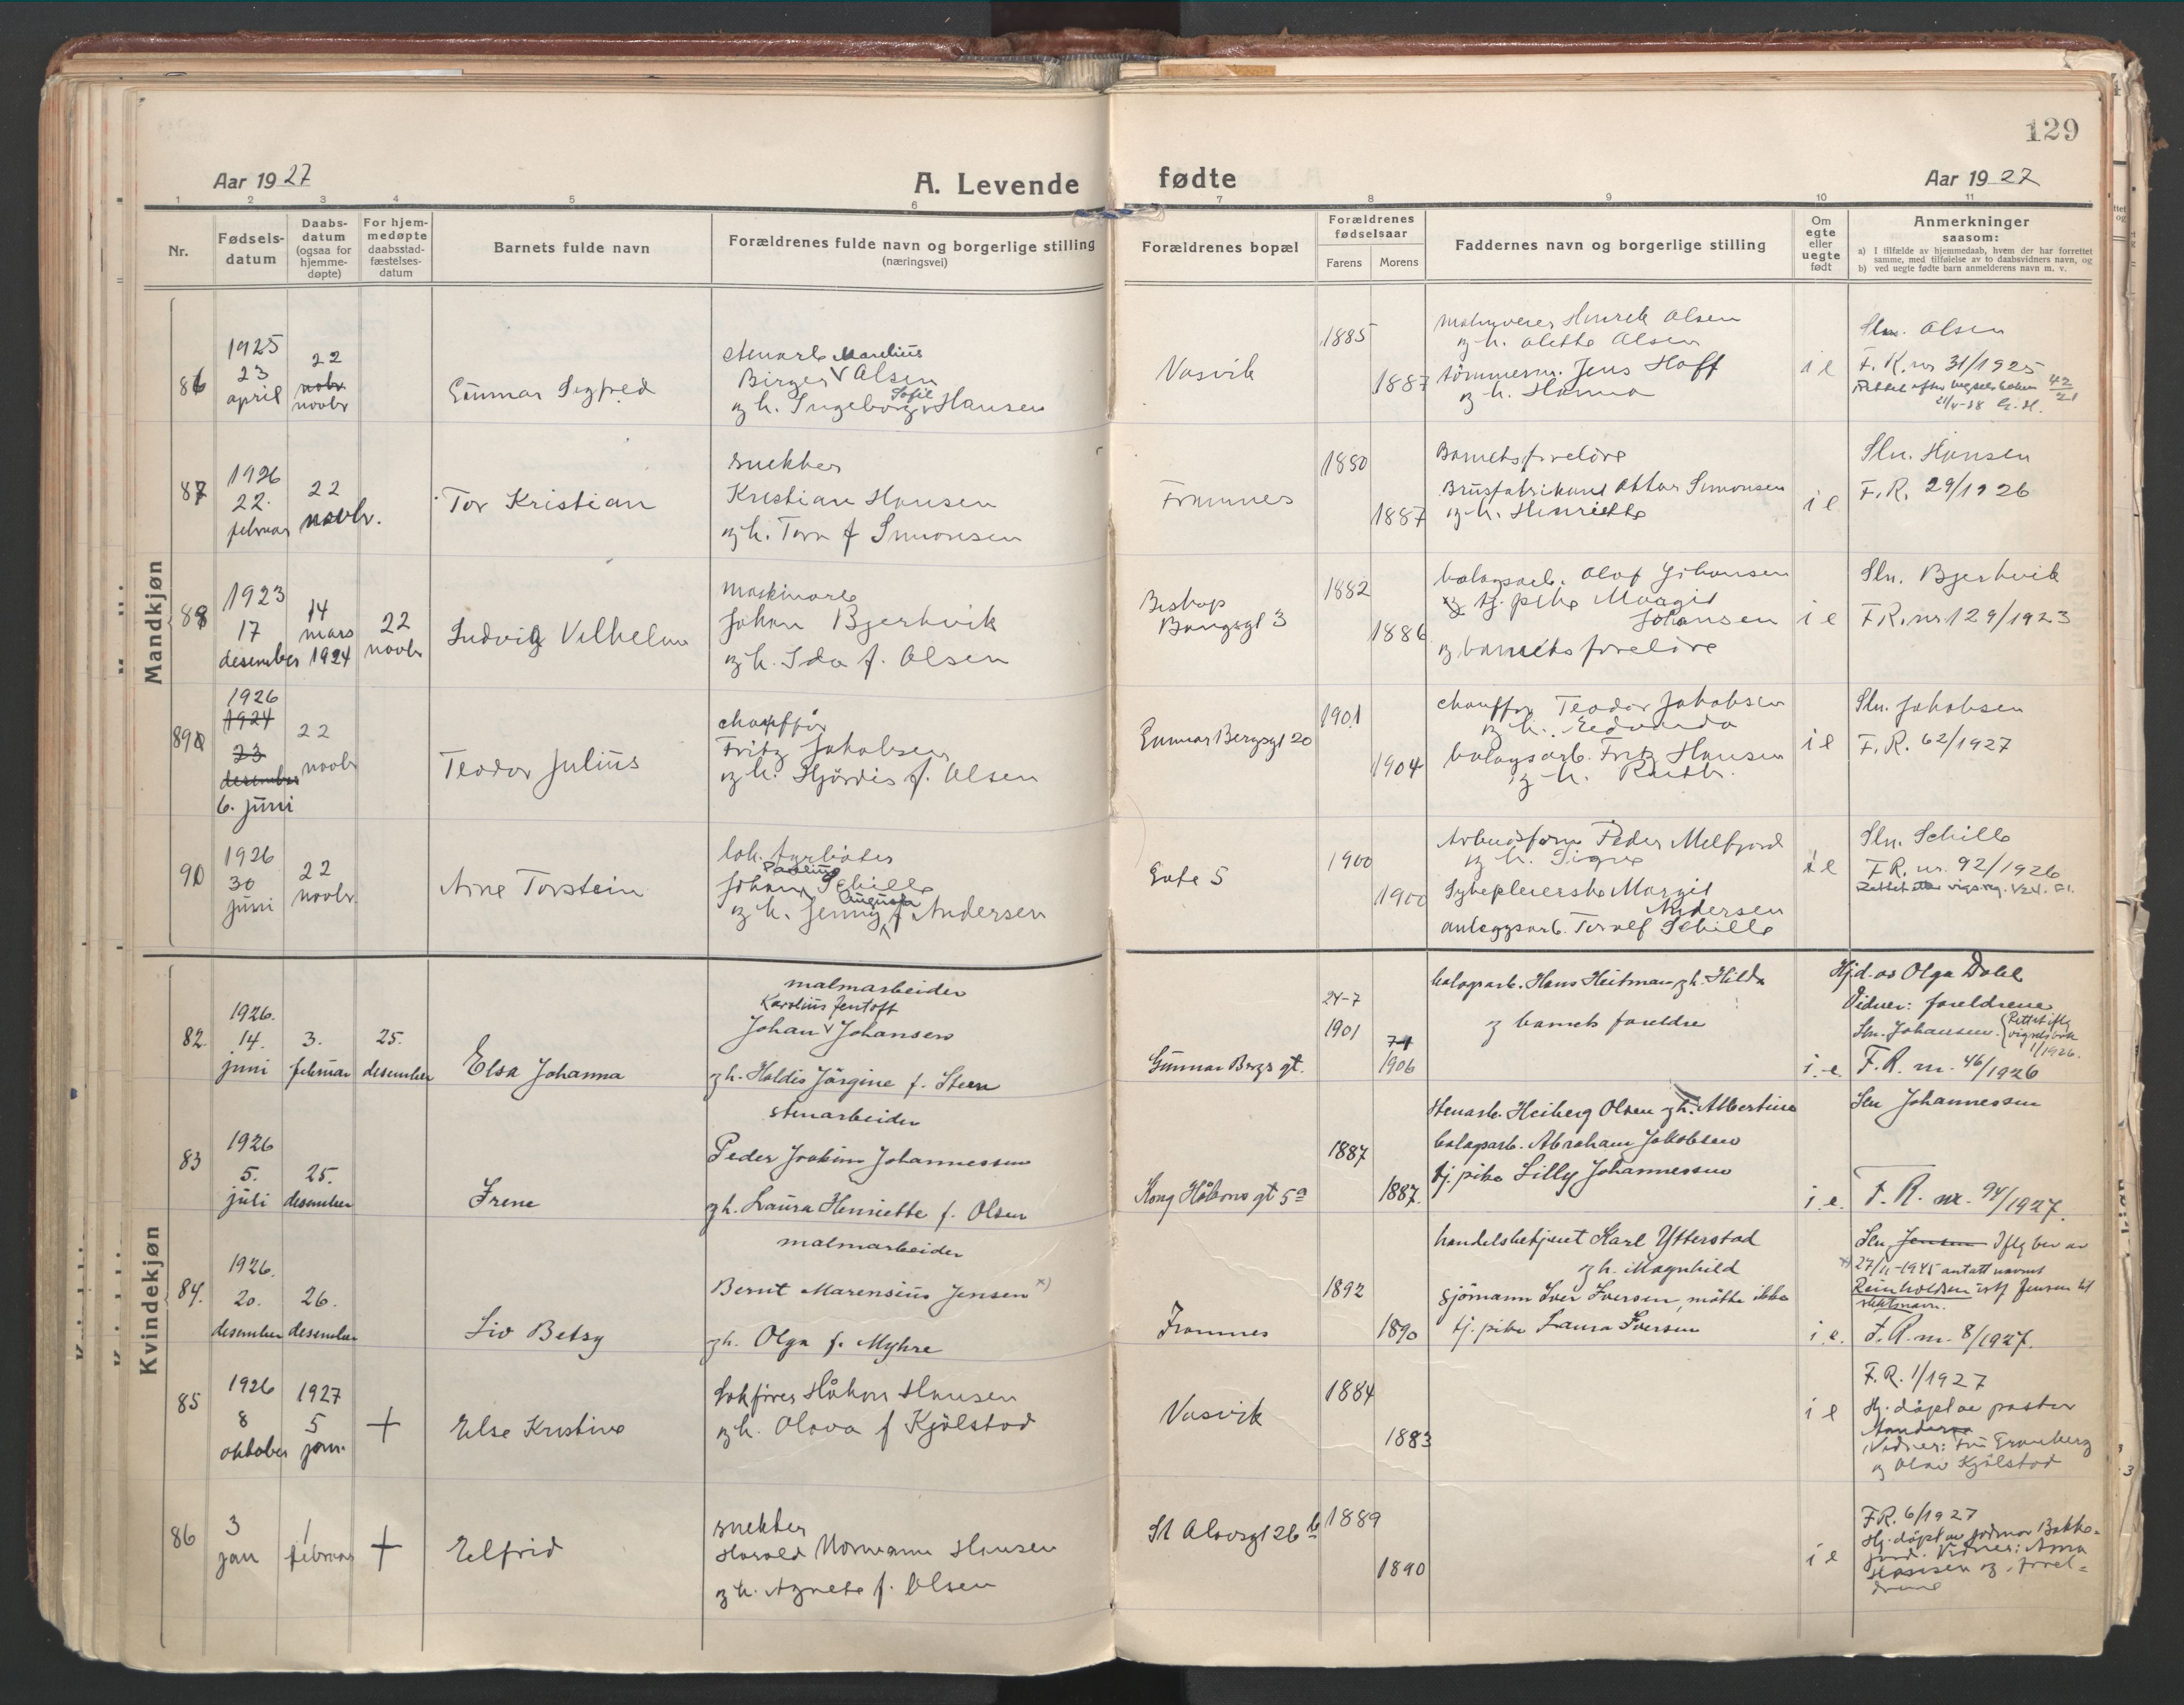 129
Aar 1927
A. Levende fødte
Aar 1927
1 2 3 4 5 6 7 8 9 10 11
Nr.
Fødsels-
datum
Daabs-
datum
(ogsaa for
hjemme-
døpte)
For hjem-
medøpte
daabsstad-
fæstelses-
datum
Barnets fulde navn
Forældrenes fulde navn og borgerlige stilling
(næringsvei)
Forældrenes bopæl
Forældrenes
fødselsaar
Farens
Morens
Faddernes navn og borgerlige stilling
Om
egte
eller
uegte
født
Anmerkninger
saasom:
a) I tilfælde av hjemmedaab, hvem der har forrettet
samme, med tilføielse av to daabsvidners navn, og
b) ved uegte fødte barn anmelderens navn m. v.
Mandkjøn
86
1925
23
april
22
novbr
novbr
Gunnar Sigfred
stenarb Marelius
Birger Olsen
og h. Ingeborg Sofie Hansen
Vasvik
1885
1887
Henrik Olsen
og h. Alette Olsen
tömmerm. Jens Hoff
og h. Hanna
i e
Sln. Olsen
F. R. nr 31/1925
87
1926
22.
februar
22
novbr.
Tor Kristian
snekker
Kristian Hansen
og h. Tora f Simonsen
Framnes
1880
1887
Barnets foreldre
Brusfabrikant Ottar Simonsen
og h. Henriette
i e
Sln. Hansen
F. R. 29/1926
88
1923
17
desember
14
mars
1924
22
novbr
Ludvig Vilhelm
maskinarb
Johan Bjerkvik
og h. Ida f. Olsen
Biskop
Bangsgt 3
1882
1886
bolagsarb. Olaf Johansen
og tj. pike Margit
Johansen
og barnets foreldre
i e
Sln. Bjerkvik
F.R. nr 129/1923
89
1926
1924
23
desember
6. juni
22
novbr
Teodor Julius
chauffør
Fritz Jakobsen
og h. Hjördis f. Olsen
Gunnar Bergsgt 20
1901
1904
chauffør Teodor Jakobsen
og h. Edvarda
bolagsarb. Fritz Hansen
og h. Ruth.
i e
Sln. Jakobsen
F. R. 62/1927
90
1926
30
juni
22
novbr.
Arne Torstein
lok. fyrböter
Johan Paulius Schille
og h. Jenny Augusta f Andersen
Gate 5
1900
1900
Arbeidsform Peder Melfjord
og h. Signe
Sykepleierske Margit
Andersen
anleggsarb. Toralf Schille
i e
Sln. Schille
F.R. nr. 92/1926
Kvindekjøn
82.
1926.
14.
juni
3.
februar
25.
desember
Elsa Johanna
malmarbeider
Karolius Jentoft
Johan Johansen
og h. Haldis Jörgine f. Steen
Gunnar Bergs gt.
24-7
1901
1906
bolagsarb. Hans Heitman og h. Hilda
og barnets foreldre
i. e.
Hjd. av Olga Dahl
Vidner: foreldrene
Sln. Johansen. Rettet iflg
1/1926.
F. R. nr. 46/1926
83
1926
5.
juli
25.
desember
Irene
stenarbeider
Peder Joakim Johannessen
og h. Laura Henriette f. Olsen
Kong Håkons gt 5a
1887
1887.
Stenarb. Heiberg Olsen og h. Albertine
bolagsarb. Abraham Jakobsen
tj. pike Lilly Johannessen
i. e.
Sln Johannessen
F. R. nr. 94/1927.
84.
1926.
20.
desember
26.
desember
Liv Betsy
malmarbeider
Bernt Marensius Jensen x)
og h. Olga f. Myhre
Framnes
1892
1890
handelsbetjent Karl Ytterstad
og h. Magnhild
sjömann Iver Iversen, mötte ikke
tj. pike Laura Iversen
i. e.
Sln Jensen Iflg bev av
x) 27/11-1945 antatt navnet
Reinholdsen istf Jensen til
slektsnavn.
F. R. nr. 8/1927.
85
1926
8
oktober
1927
5
jan.
+
Else Kristine
Lokförer Håkon Hansen
og h. Olava f Kjölstad
Vasvik
1884
1883
i e
F. R. 1/1927
Hj. döpt av pastor
Vidner: Fru Granberg
og Olav Kjölstad
86
3
jan
1
februar
+
Elfrid
snekker
Harald Normann Hansen
og h. Agnete f. Olsen
St Olavsgt 26 b
1889
1890
i e
F.R. 6/1927
Hj. döpt av jordmor Bakke-
jord. Vidner: Anna
Hansen og forel-
drene